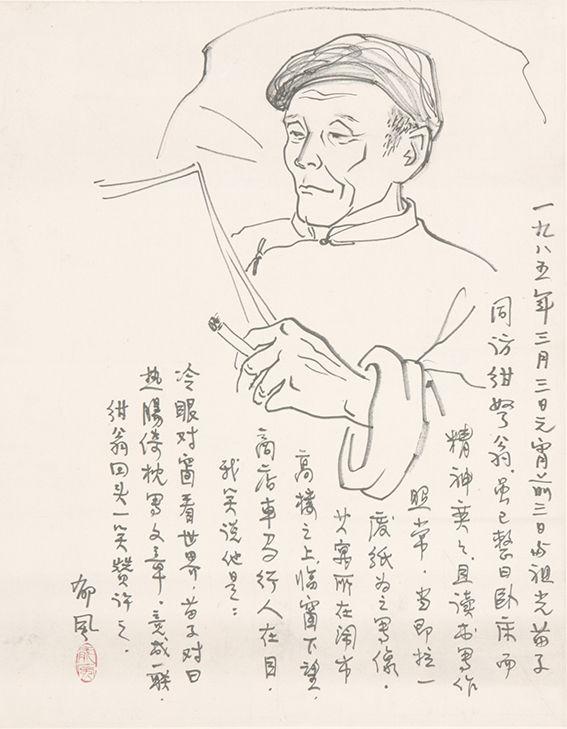 一九八五年三月三日元宵前三日与祖光苗子
同访绀弩翁.虽已整日卧床而
精神奕々且读书写作
照常.当即拉一
废纸为之写像.
其寓所在闹市
高楼之上,临窗下望,
商店車马行人在目.
我笑说他是:
冷眼对窗看世界.苗子对曰
热肠倚枕写文章.竟成一联.
绀翁回头一笑赞许之.
郁风